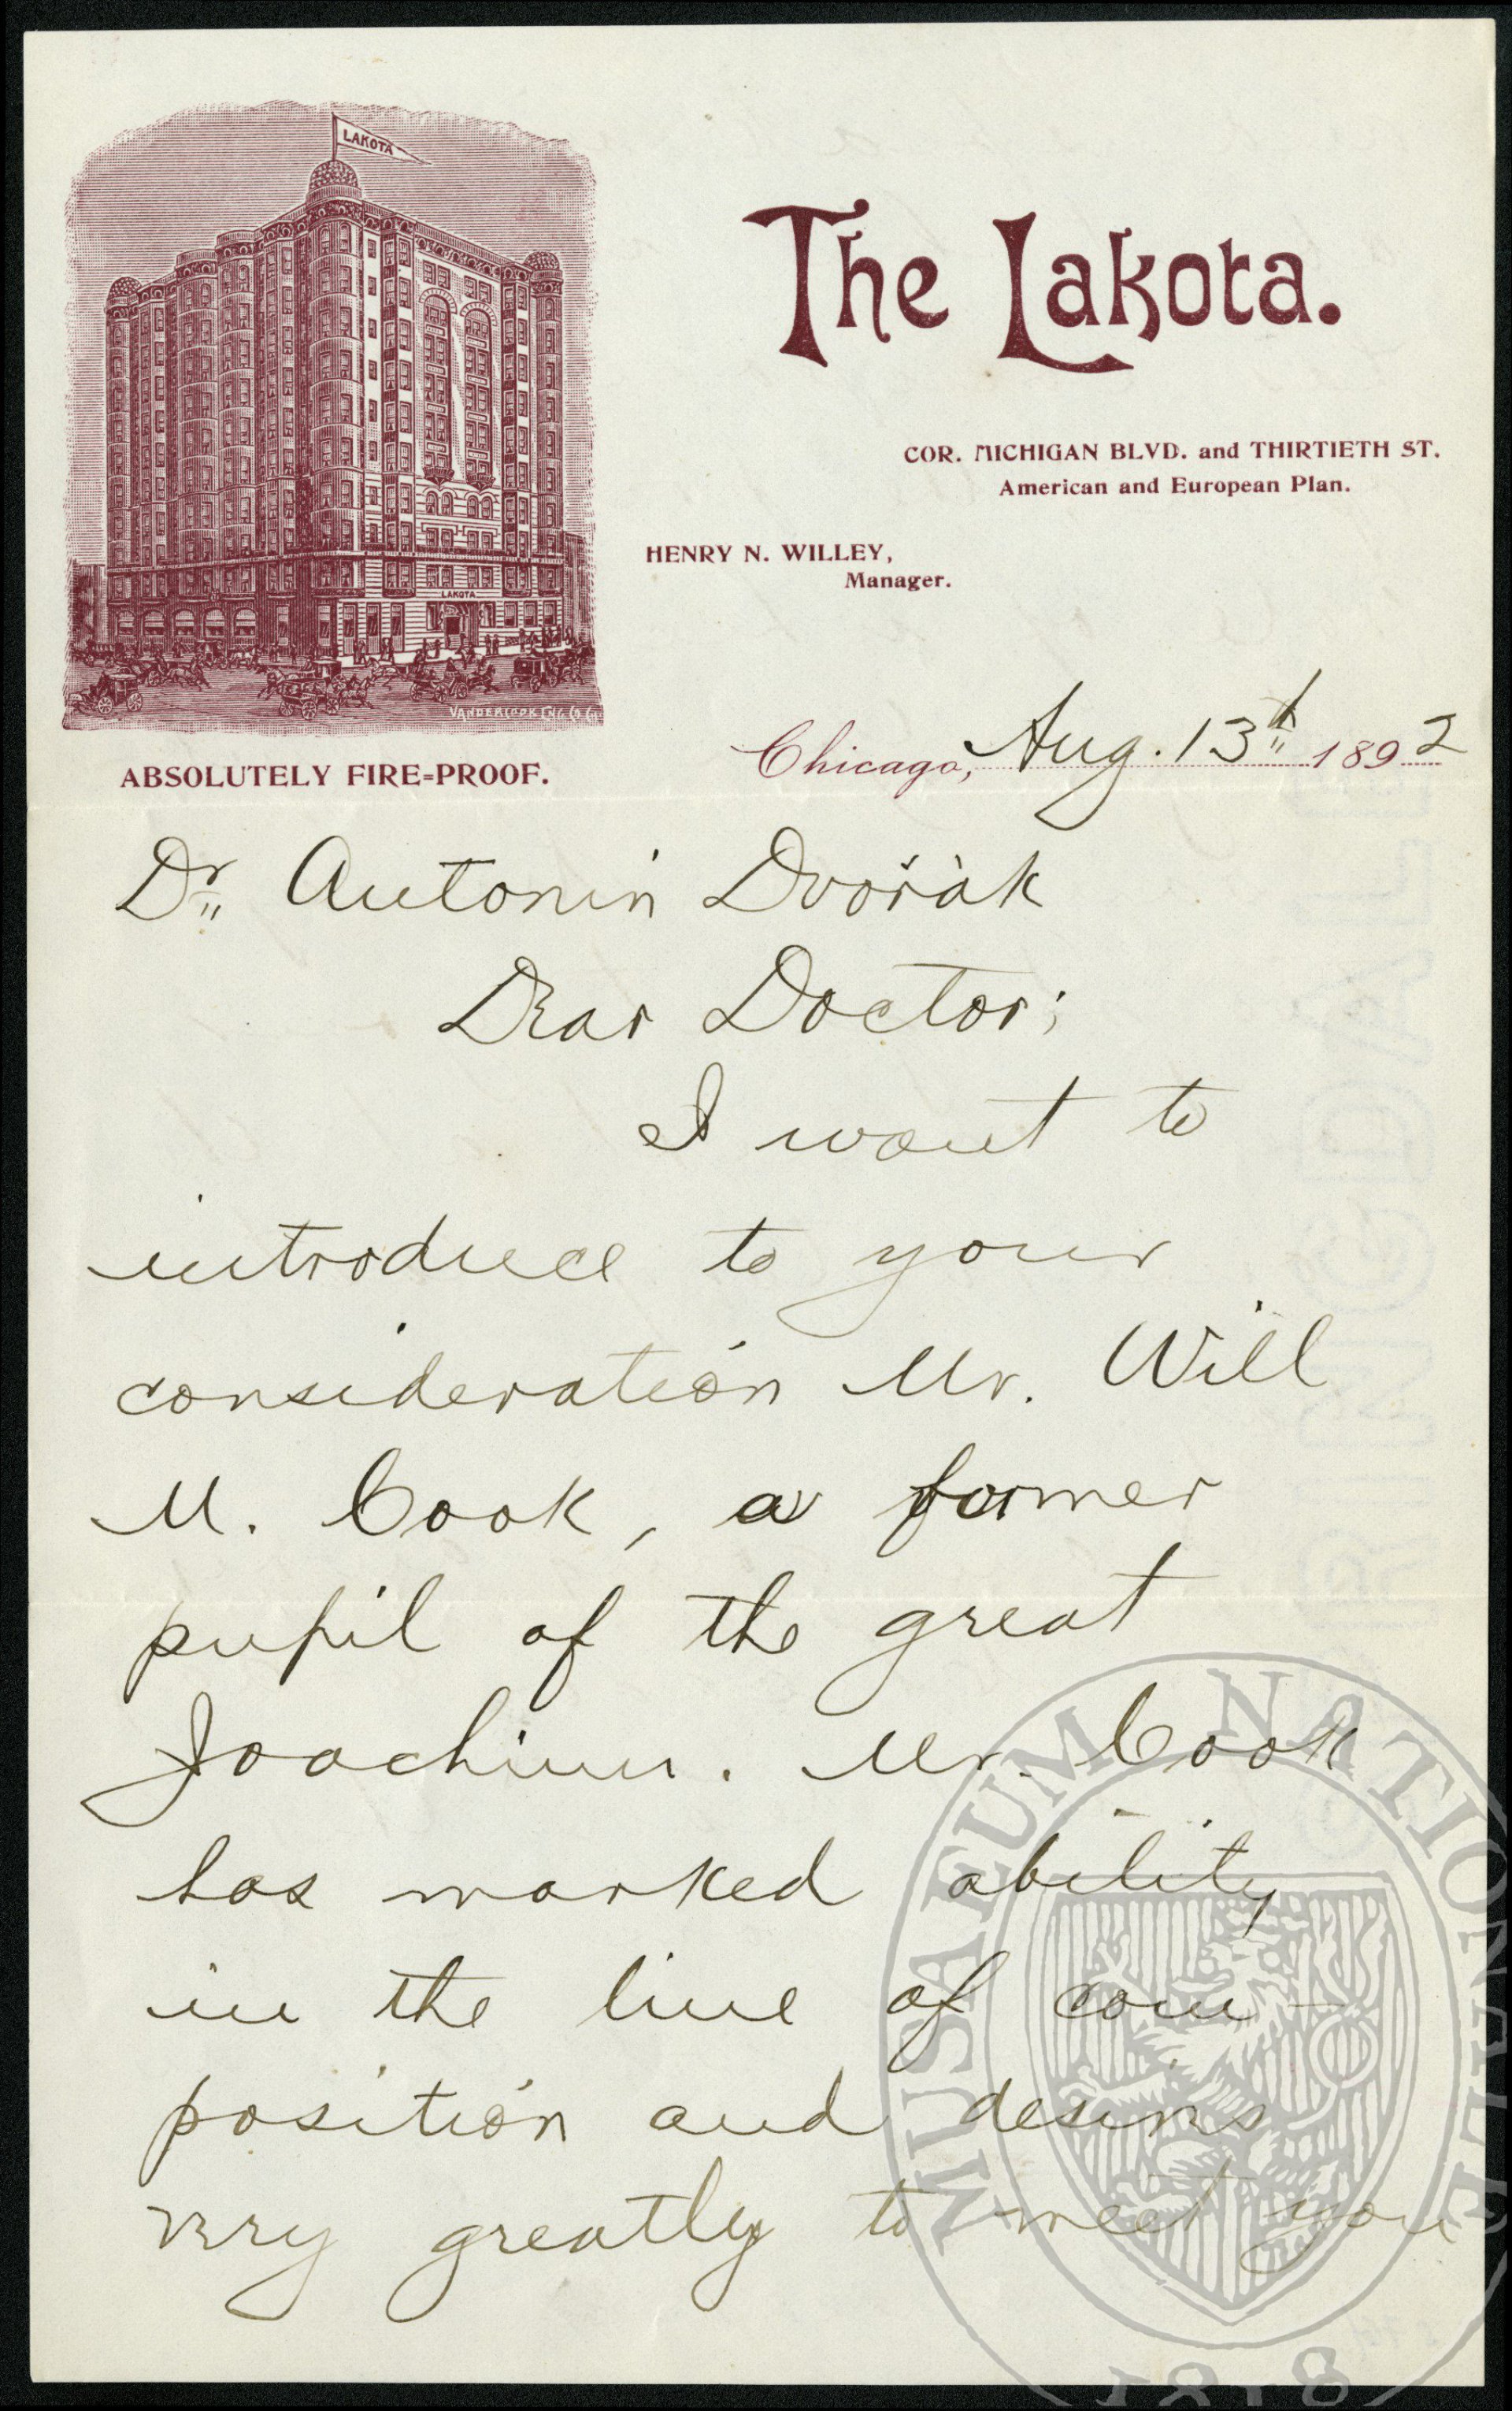 LAKOTA
The Lakota.
COR. MICHIGAN BLVD. and THIRTIETH ST.
American and European Plan.
HENRY N. WILLEY,
Manager.
LAKOTA
VANDERCOOK ENG. Co. CH.
ABSOLUTELY FIRE=PROOF.
Chicago, Aug. 13th 1892
Dr. Antonín Dvořák
Dear Doctor;
I want to
introduce to your
consideration Mr. Will
M. Cook, a former
pupil of the great
Joachim. Mr. Cook
has marked ability
in the line of com-
position and desires
very greatly to meet you
MUSAEUM NATIONALE
1818